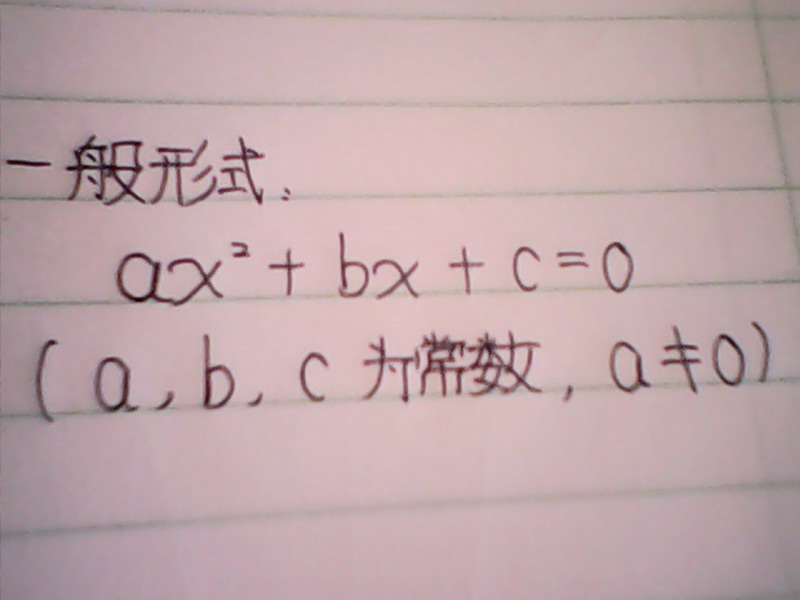 一般形式:
ax²+bx+c=0
(a,b,c为常数,a≠0)